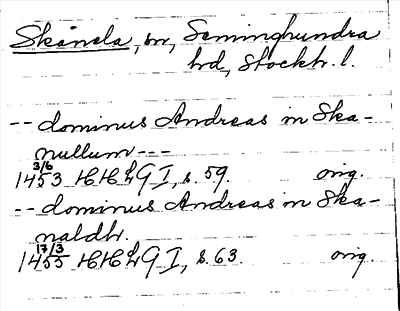 Skånela, sn, Seminghundra
hd, Stockh. l.
-- dominus Andreas in Ska-
nullum ---
3/6
1453 HHLG I, s. 59. orig.
-- dominus Andreas in Ska-
naldh.
17/3
1455 HHLG I, s. 63. orig.